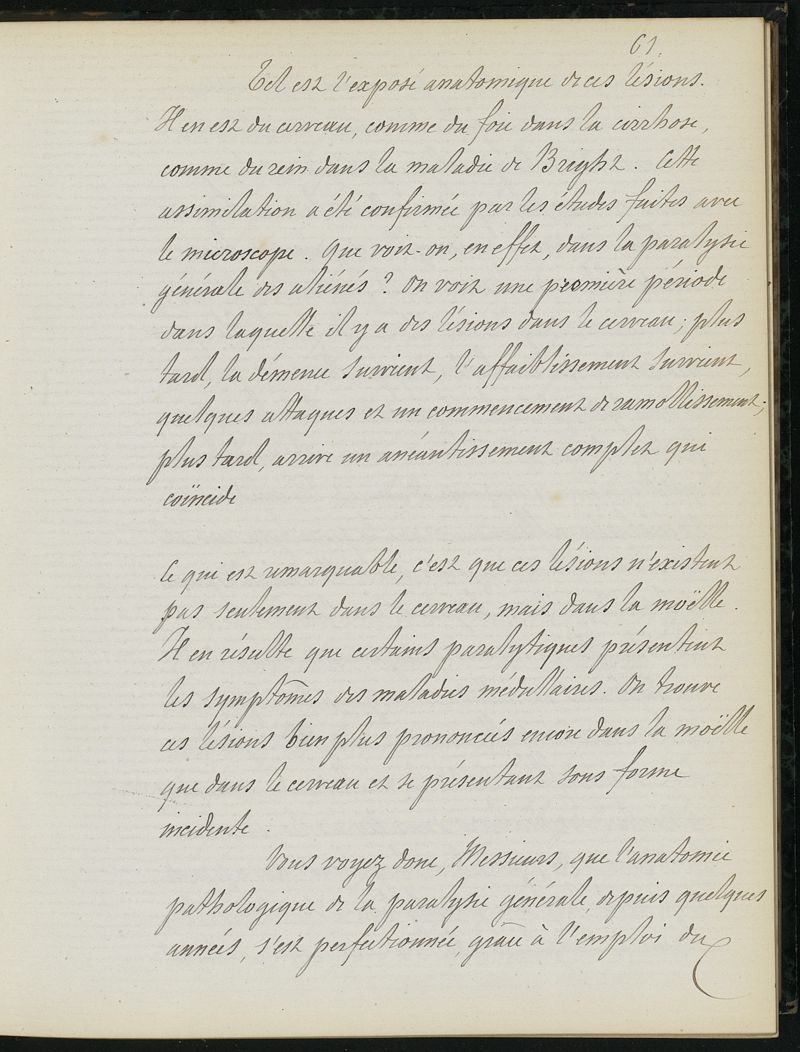 61.
Tel est l'exposé anatomique de ces lésions.
Il en est du cerveau, comme du foie dans la cirrhose,
comme du rein dans la maladie de Bright. Cette
assimilation a été confirmée par les études faites avec
le microscope. Que voit-on, en effet, dans la paralysie
générale des aliénés ? On voit une première période
dans laquelle il y a des lésions dans le cerveau ; plus
tard, la démence survient, l'affaiblissement survient,
quelques attaques et un commencement de ramollissement ;
plus tard, arrive un anéantissement complet qui
coïncide
Ce qui est remarquable, c'est que ces lésions n'existent
pas seulement dans le cerveau, mais dans la moëlle.
Il en résulte que certains paralytiques présentent
les symptômes des maladies médullaires. On trouve
ces lésions bien plus prononcées encore dans la moëlle
que dans le cerveau et se présentant sous forme
incidente.
Vous voyez donc, Messieurs, que l'anatomie
pathologique de la paralysie générale, depuis quelques
années, s'est perfectionnée, grâce à l'emploi du